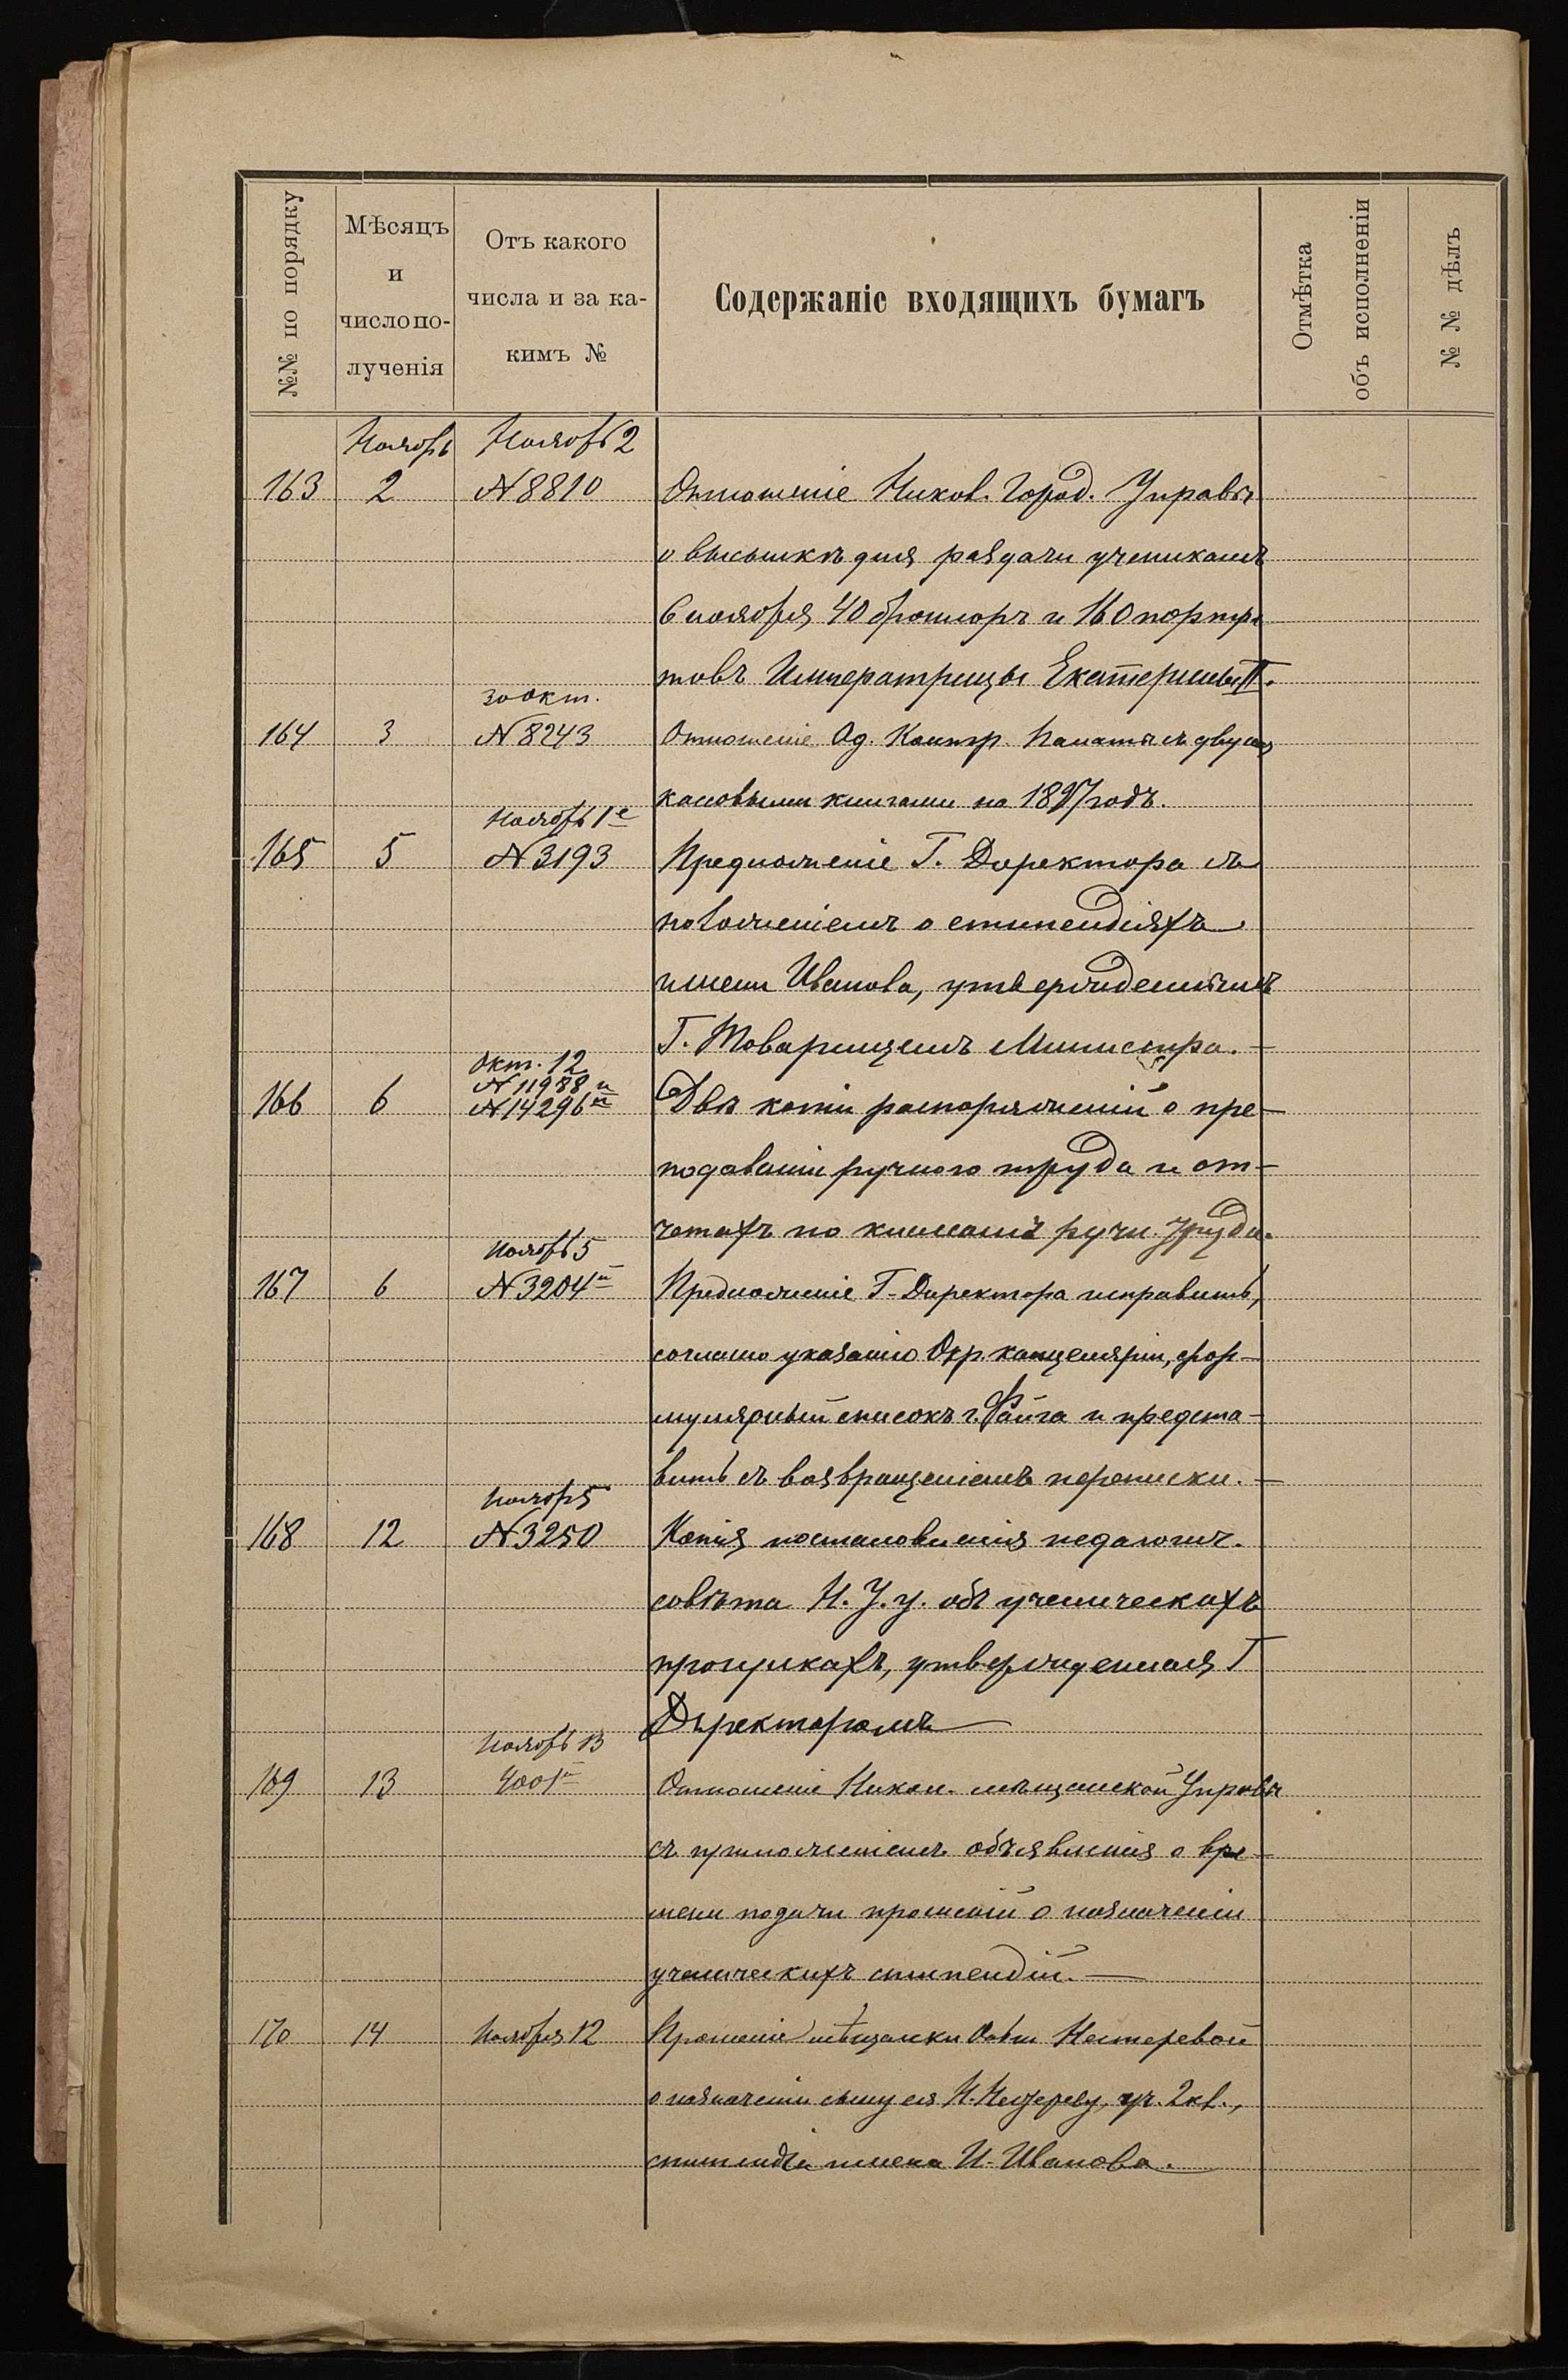 №№ по порядку
Мѣсяцъ
и
число по-
лученія
Отъ какого
числа и за ка-
кимъ №
Содержаніе входящихъ бумагъ
Отмѣтка
объ исполненіи
№ № дѣлъ
Ноябрь Ноябрь 2
163 2 N 8810 Отношеніе Никол. Город. Управы
о высылкѣ для раздачи ученикамъ
6 ноября 40 брошюръ и 160 портре
товъ Императрицы Екатерины II.
30 окт.
164 3 N 8243 Отношеніе Од. Контр. Палаты съ двумя
кассовыми книгами на 1897 годъ.
Ноябрь 1е
165 5 N 3193 Предложеніе Г. Директора съ
положеніемъ о стипендіяхъ
имени Иванова, утвержденнымъ
Г. Товарищемъ Министра. —
Окт. 12
N 11988 и
166 6 N 14296 Двѣ копіи распоряженій о пре-
подаваніи ручного труда и от-
четахъ по ручн. труда.
Ноябрь 5
167 6 N 3204 Предложеніе Г. Директора исправить,
согласно указанію Окр. канцеляріи, фор-
мулярный списокъ г. Файга и предста-
вить съ возвращеніемъ переписки. —
Ноябрь 5
168 12 N 3250 Копія постановленія педагогич.
совѣта Н. У. у. объ ученическихъ
прогулкахъ, утвержденная Г
Директоромъ —
Ноябрь 13
169 13 4001 Отношеніе Никол. мѣщанской Управы
съ приложеніемъ объявленія о вре-
мени подачи прошеній о назначеніи
ученическихъ стипендій. —
170 14 Ноября 12 Прошеніе мѣщанки Нестеревой
о назначеніи сыну ея Н. Нестереву, уч. 2 кл.,
стипендіи имени И. Иванова.